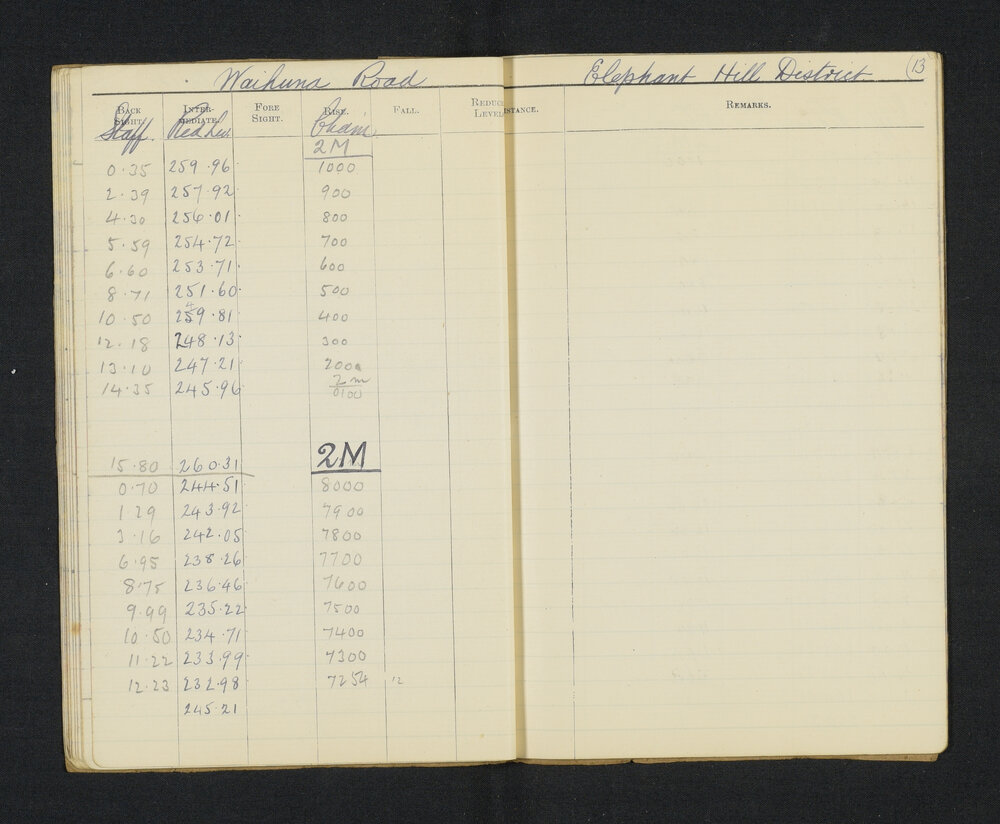 Waihuna Road Elephant Hill District (13
BACK SIGHT. INTER-MEDIATE. FORE SIGHT. RISE. FALL. REDUCE LEVEL ISTANCE. REMARKS.
Staff Red Lev Chain
2M
0.35 259.96 1000
2.39 257.92 900
4.30 256.01 800
5.59 254.72 700
6.60 253.71 600
8.71 251.60 500
10.50 259.81 400
12.18 248.13 300
13.10 247.21 2000
14.35 245.96 2m
0100
2M
15.80 260.31
0.70 244.51 8000
1.29 243.92 7900
3.16 242.05 7800
6.95 238.26 7700
8.75 236.46 7600
9.99 235.22 7500
10.50 234.71 7400
11.22 233.99 7300
12.23 232.98 7254 12
245.21